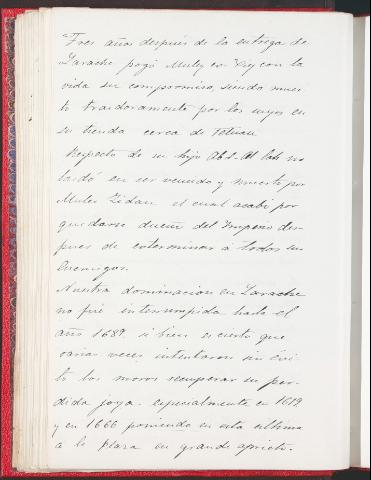 Tres años después de la entrega de
Larache pagó Muley ex-Rey con la
vida su compromiso, siendo muer
to traidoramente por los suyos en
su tienda cerca de Tetuan
Respecto de su hijo Abd-Al-lah no
tardó en ser vencido y muerto por
Muley Zidan el cual acabó por
quedarse dueño del Imperio des
pues de exterminar á todos sus
enemigos.
Nuestra dominacion en Larache
no fué interrumpida hasta el
año 1689. si bien es cierto que
varias veces intentaron sin éxi
to los moros recuperar su per-
dida joya. especialmente en 1619
y en 1666 poniendo en esta ultima
á la plaza en grande aprieto.